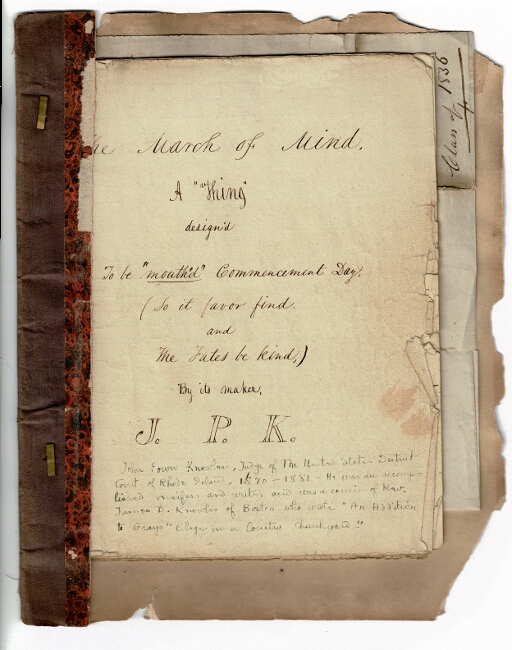 he March of Mind.
A "Thing"
design'd
To be "mouth'd" Commencement Day.
(So it favor find
and
The Fates be kind,)
By its maker,
J. P. K.
John Power Knowles, Judge of The United States District
Court of Rhode Island, 1870 - 1881 - He was an accomp-
lished versifier and writer and was a cousin of Rev.
James D. Knowles of Boston who wrote "An Addition
to Grays" Elegy in a Country Churchyard"
Class of 1836